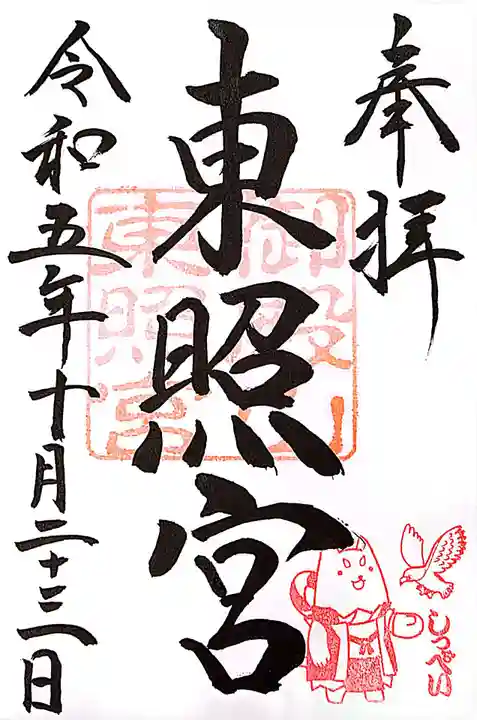 奉拝
東照宮
令和五年十月二十三日
御殿山
東照宮
しっぺい